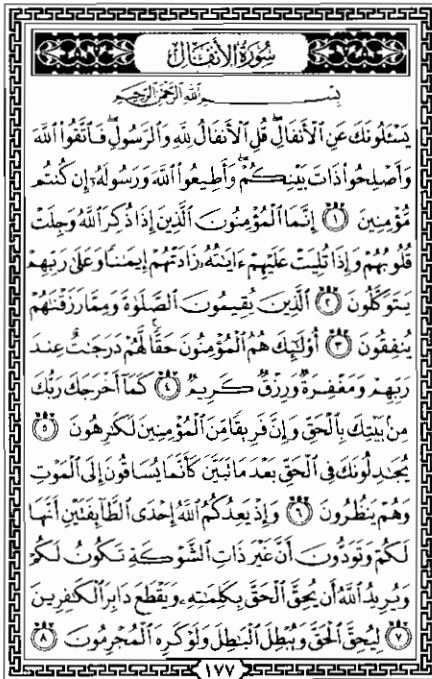 سُورَةُ الْأَنفَالِ
بِسْمِ ٱللَّهِ ٱلرَّحْمَٰنِ ٱلرَّحِيمِ
يَسْـَٔلُونَكَ عَنِ ٱلْأَنفَالِۖ قُلِ ٱلْأَنفَالُ لِلَّهِ وَٱلرَّسُولِۖ فَٱتَّقُوا۟ ٱللَّهَ
وَأَصْلِحُوا۟ ذَاتَ بَيْنِكُمْۖ وَأَطِيعُوا۟ ٱللَّهَ وَرَسُولَهُۥٓ إِن كُنتُم
مُّؤْمِنِينَ ١ إِنَّمَا ٱلْمُؤْمِنُونَ ٱلَّذِينَ إِذَا ذُكِرَ ٱللَّهُ وَجِلَتْ
قُلُوبُهُمْ وَإِذَا تُلِيَتْ عَلَيْهِمْ ءَايَٰتُهُۥ زَادَتْهُمْ إِيمَٰنًا وَعَلَىٰ رَبِّهِمْ
يَتَوَكَّلُونَ ٢ ٱلَّذِينَ يُقِيمُونَ ٱلصَّلَوٰةَ وَمِمَّا رَزَقْنَٰهُمْ
يُنفِقُونَ ٣ أُو۟لَٰٓئِكَ هُمُ ٱلْمُؤْمِنُونَ حَقًّاۚ لَّهُمْ دَرَجَٰتٌ عِندَ
رَبِّهِمْ وَمَغْفِرَةٌ وَرِزْقٌ كَرِيمٌ ٤ كَمَآ أَخْرَجَكَ رَبُّكَ
مِنۢ بَيْتِكَ بِٱلْحَقِّ وَإِنَّ فَرِيقًا مِّنَ ٱلْمُؤْمِنِينَ لَكَٰرِهُونَ ٥
يُجَٰدِلُونَكَ فِى ٱلْحَقِّ بَعْدَ مَا تَبَيَّنَ كَأَنَّمَا يُسَاقُونَ إِلَى ٱلْمَوْتِ
وَهُمْ يَنظُرُونَ ٦ وَإِذْ يَعِدُكُمُ ٱللَّهُ إِحْدَى ٱلطَّآئِفَتَيْنِ أَنَّهَا
لَكُمْ وَتَوَدُّونَ أَنَّ غَيْرَ ذَاتِ ٱلشَّوْكَةِ تَكُونُ لَكُمْ
وَيُرِيدُ ٱللَّهُ أَن يُحِقَّ ٱلْحَقَّ بِكَلِمَٰتِهِۦ وَيَقْطَعَ دَابِرَ ٱلْكَٰفِرِينَ
٧ لِيُحِقَّ ٱلْحَقَّ وَيُبْطِلَ ٱلْبَٰطِلَ وَلَوْ كَرِهَ ٱلْمُجْرِمُونَ ٨
١٧٧